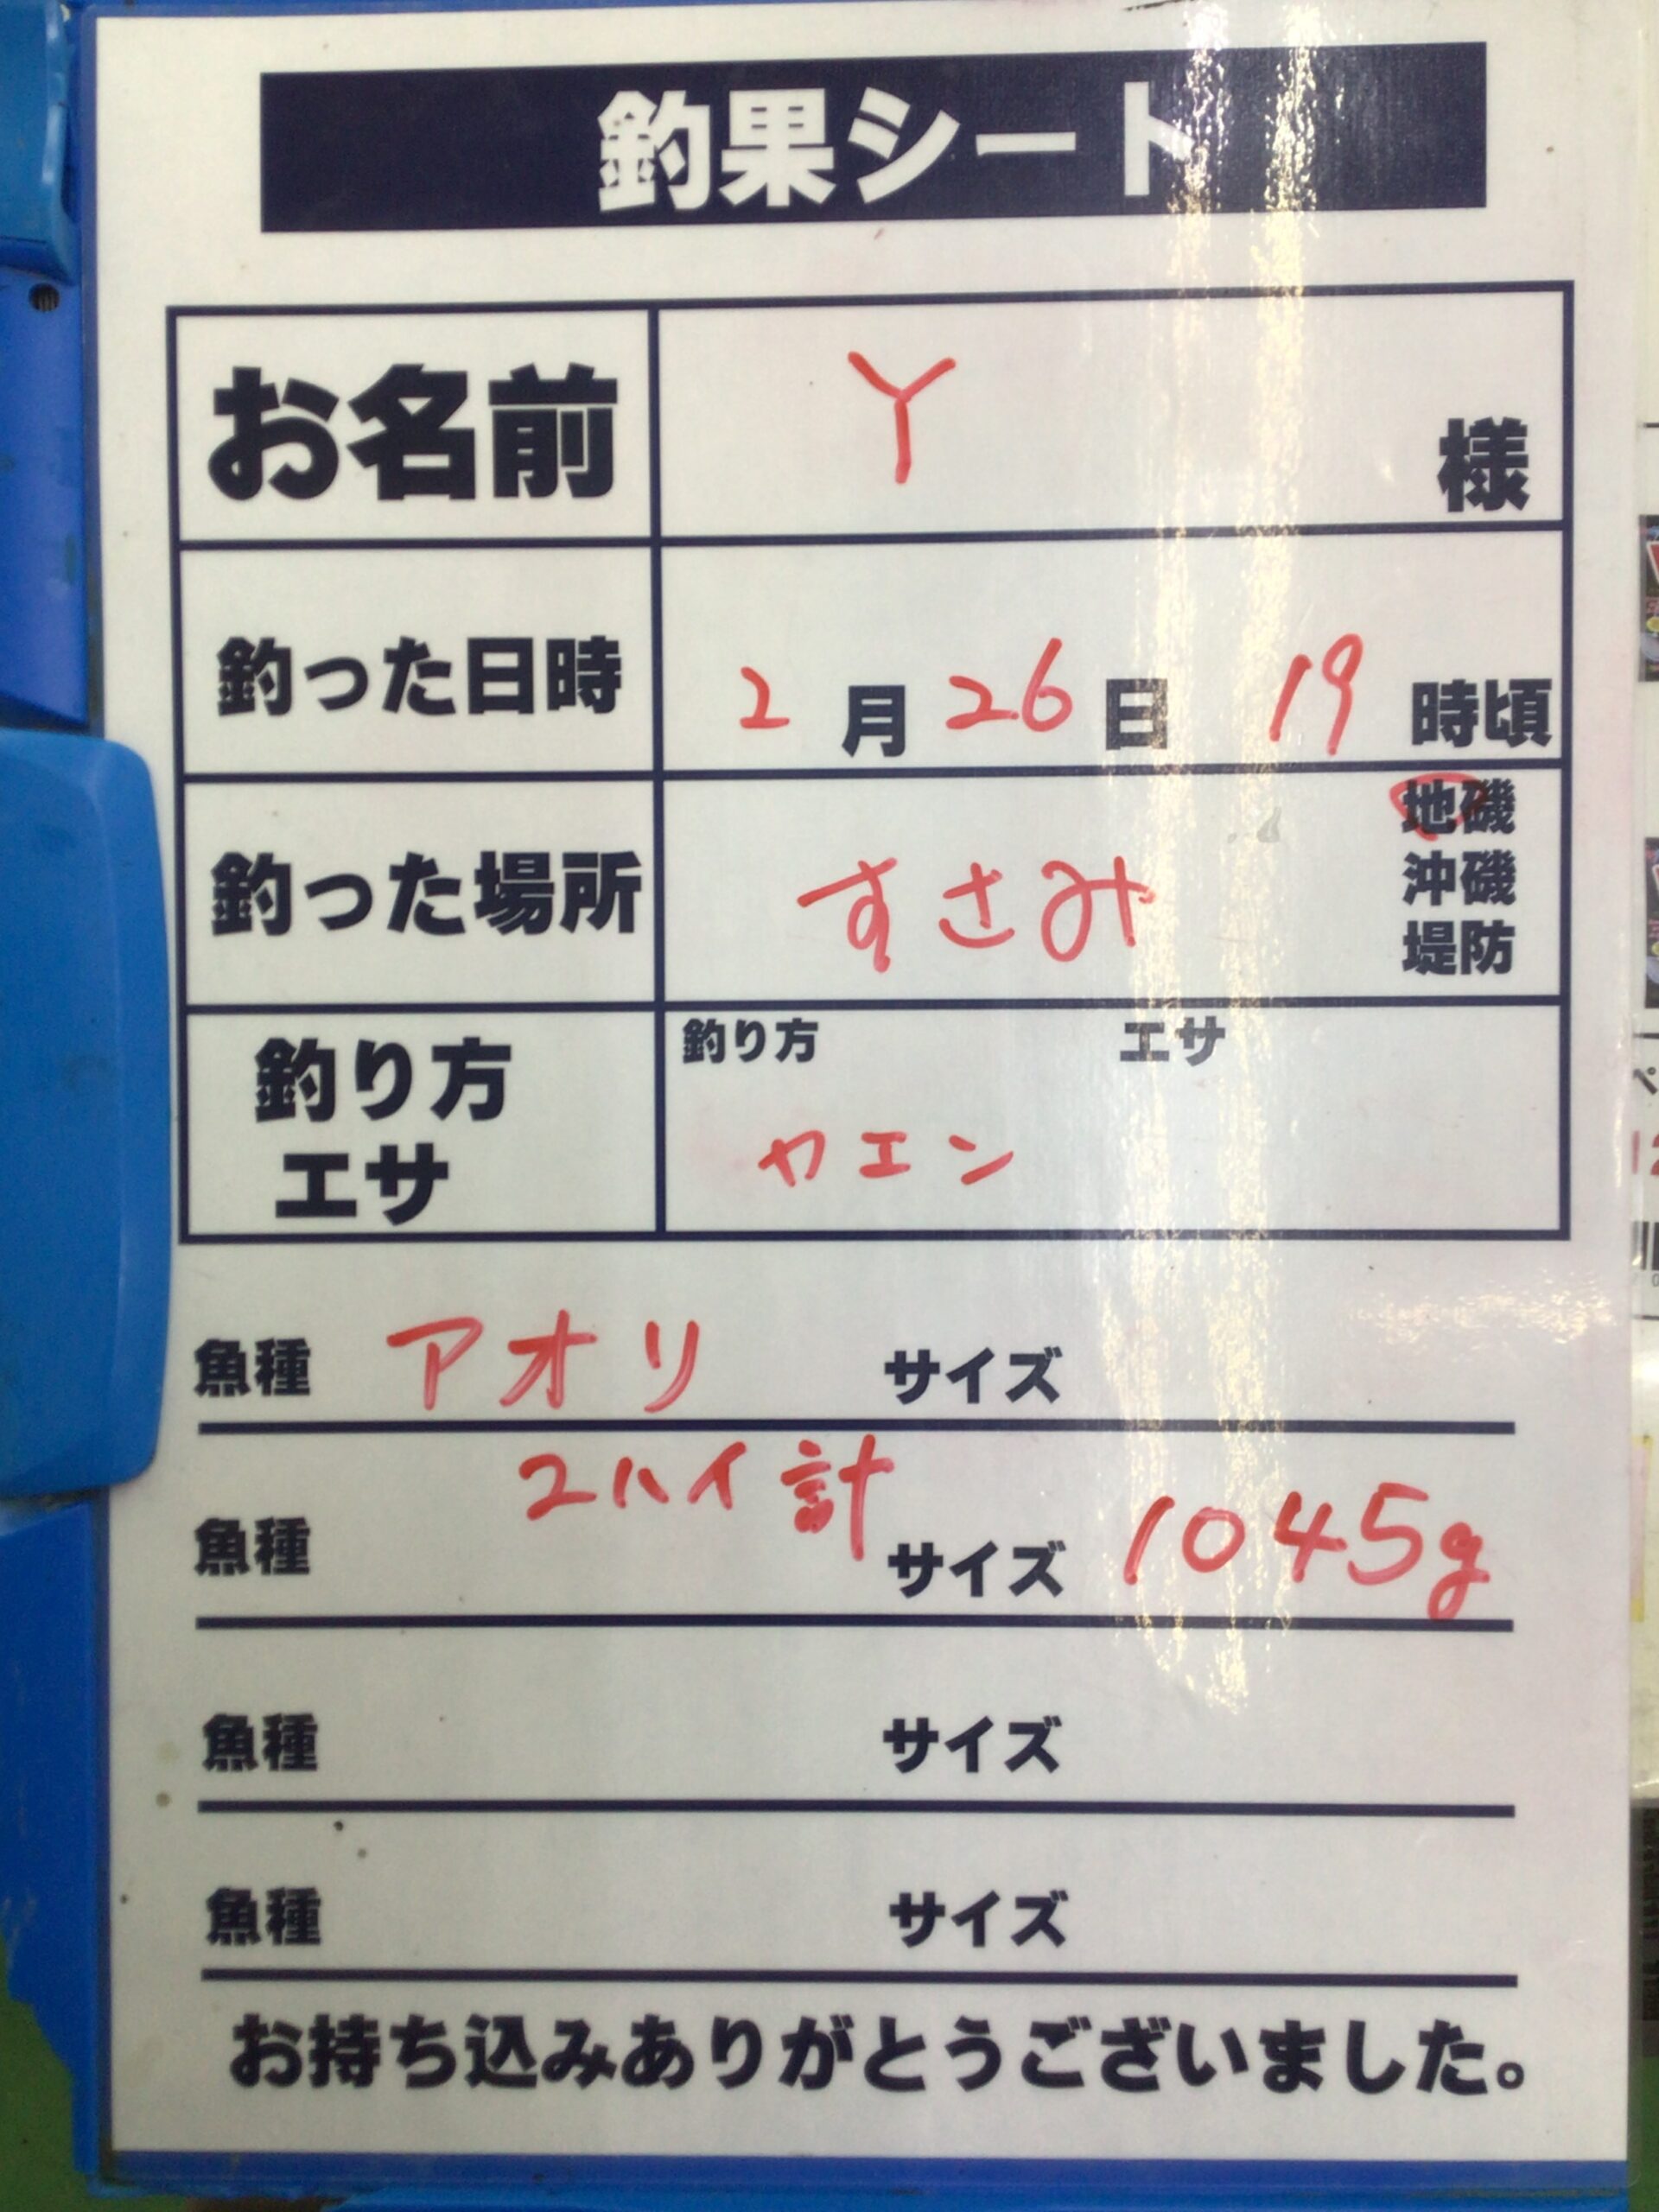 釣果シート
お名前 Y 様
釣った日時 2月26日 19時頃
釣った場所 すさみ 地磯
沖磯
堤防
釣り方 エサ
釣り方
エサ
ヤエン
魚種 アオリ サイズ
魚種 2ハイ計 サイズ 1045g
魚種 サイズ
魚種 サイズ
お持ち込みありがとうございました。